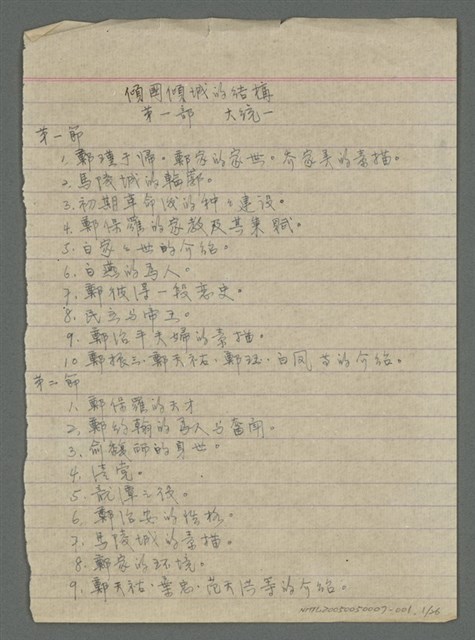 傾國傾城的結構
第一部 大統一
第一節
1. 鄭瑛于歸。鄭家的家世。齐家吴的素描。
2. 馬陵城的輪廓。
3. 初期革命後的种々建设。
4. 鄭保羅的家教及其集賦。
5. 白家々世的介紹。
6. 白燕的為人。
7. 鄭彼得一段恋史。
8. 民主与帝王。
9. 鄭治平夫婦的素描。
10. 鄭振三・鄭天祐・鄭瑛・白凤等的介绍。
第二節
1. 鄭保羅的天才
2. 鄭約翰的為人与奮闘。
3. 俞 師的身世。
4. 清党。
5. 龍潭之役。
6. 鄭治安的性格。
7. 馬陵城的素描。
8. 鄭家的环境。
9. 鄭天祐・葉忠・范天浩等的介绍。
NMTL20050050007-001. 1/26